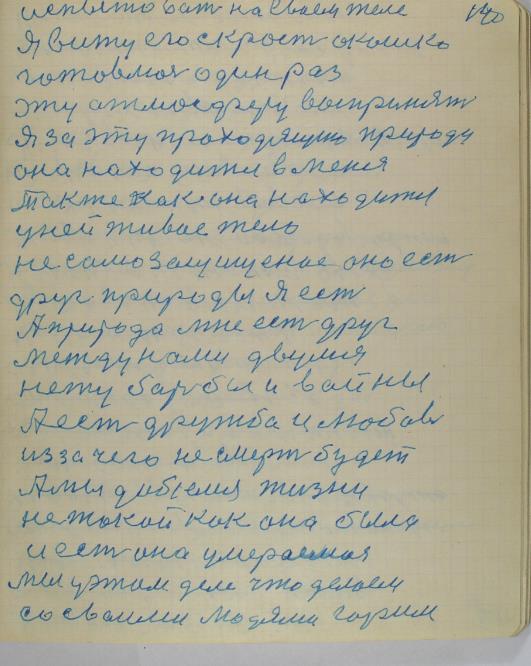 испытоват на своем теле 140
Я вижу его скрост окошко
готовлюся один раз
эту атмосферу воспринят
Я за эту проходящую природу
она находится в меня
Также как она находится
у ней живое тело
не самозащищеное оно ест
друг природы я ест
А природа мне ест друг
между нами двумя
нету барбы и вайны
А ест дружба и любов
из за чего не смерт будет
А мы добьемся жизни
не токой как она была
и ест она умераемая
мы у этом деле что делаем
со своими людями гарим